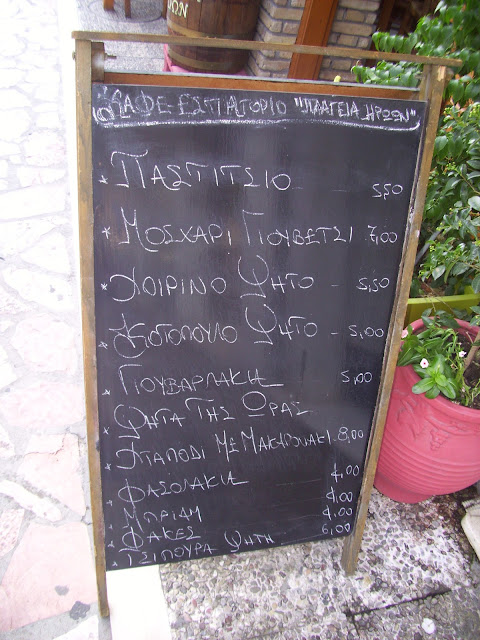 ΚΑΦΕ-ΕΣΤΙΑΤΟΡΙΟ "ΠΛΑΤΕΙΑ ΗΡΩΩΝ"
* ΠΑΣΤΙΤΣΙΟ - 5,50
* ΜΟΣΧΑΡΙ ΓΙΟΥΒΕΤΣΙ 7,00
* ΧΟΙΡΙΝΟ ΨΗΤΟ - 5,50
* ΚΟΤΟΠΟΥΛΟ ΨΗΤΟ - 5,00
* ΓΙΟΥΒΑΡΛΑΚΙΑ 5,00
* ΨΗΤΑ ΤΗΣ ΩΡΑΣ
* ΧΤΑΠΟΔΙ ΜΕ ΜΑΚΑΡΟΝΑΚΙ. 8,00
* ΦΑΣΟΛΑΚΙΑ 4,00
* ΜΠΡΙΑΜ 4,00
* ΦΑΚΕΣ 4,00
* ΤΣΙΠΟΥΡΑ ΨΗΤΗ 6,00